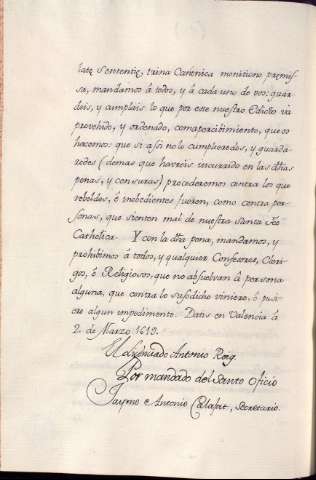 latę Sententię, trina Canonica monitione premis-
sa, mandamos á todos, y á cada uno de vos: guar-
deis, y cumplais lo que por este nuestro Edicto va
provehido, y ordenado, con apercibimiento, que os
hacemos: que si assi no lo cumpliereds, y guardá-
redes (demas que havreis incurrido en las dhas
penas, y censuras) procederemos contra los que
rebeldes, é inobedientes fueren, como contra per-
sonas, que sienten mal de nuestra Santa Fée
Catholica. Y con la dha pena, mandamos, y
prohibimos á todos, y qualquier Confesores, Cleri-
gos, ó Religiosos, que no absuelvan á persona
alguna, que contra lo susodicho viniere, ó pusi-
ere algun impedimento. Datis en Valencia á
2. de Marzo 1619.
El Licenciado Antonio Roig.
Por mandado del Santo Oficio
Jayme Antonio Calafat, Secretario.